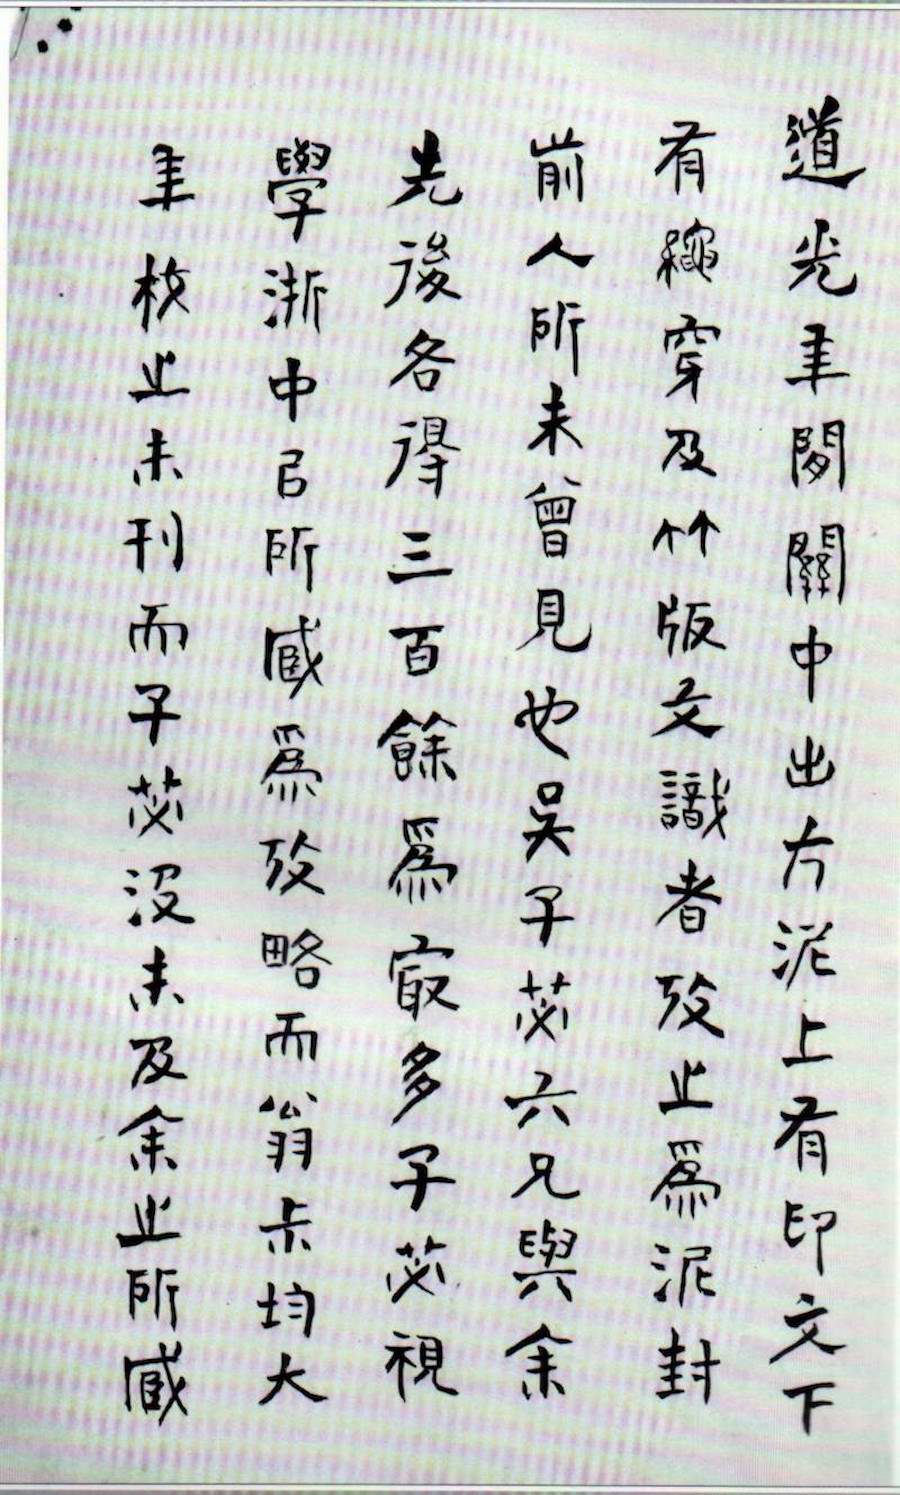 道光年間關中出方泥上有印文下
有繩穿及竹版文識者攷之爲泥封
前人所未曾見也吳子苾六兄與余
先後各得三百餘爲冣多子苾視
學浙中㠯所臧爲攷略而翁尗均大
年校之未刊而子苾沒未及余之所臧